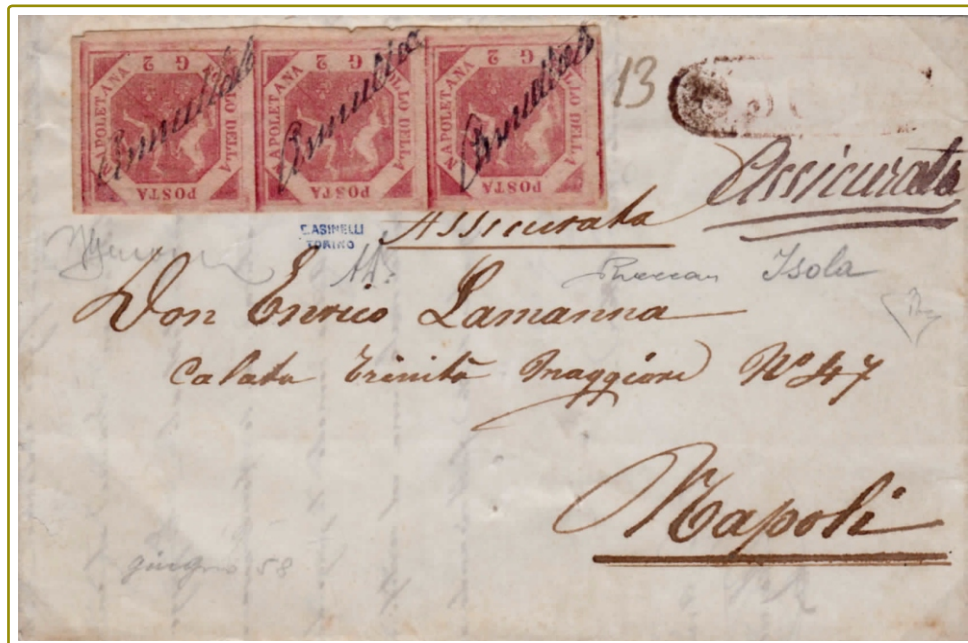 G 2 G 2 G 2
BOLLO DELLA POSTA NAPOLETANA BOLLO DELLA POSTA NAPOLETANA BOLLO DELLA POSTA NAPOLETANA
Annullato Annullato Annullato
13
Assicurata
Assicurata
E.ASINELLI
TORINO
Isola
Don Enrico Lamanna
Calata Trinità Maggiore Nº 47
Napoli
giugno 58